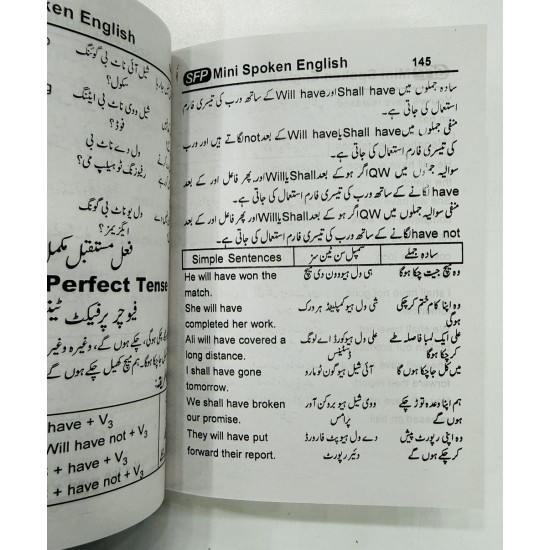 oken English
شیل آئی ناٹ بی گوئنگ
سکول؟
شیل وی ناٹ بی ایٹنگ
فوڈ؟
ول دے ناٹ بی
ریفیوزنگ ٹو ہیلپ می؟
ول یو ناٹ بی گوئنگ
ایگزیمز؟
فعل مستقبل مکمل
Perfect Tense
فیوچر پرفیکٹ ٹین
گی، چکے ہوں گے، وغیرہ وغیر
ہم میچ کھیل چکے ہوں گے
have + V3
Will have not + V3
s + have + V3
+ have not + V3
SFP Mini Spoken English 145
سادہ جملوں میں Shall have اور Will have کے ساتھ ورب کی تیسری فارم
استعمال کی جاتی ہے۔
منفی جملوں میں Shall have یا Will have کے بعد not لگاتے ہیں اور ورب
کی تیسری فارم استعمال کی جاتی ہے۔
سوالیہ جملوں میں QW اگر ہو کے بعد Shall یا Will اور پھر فاعل اور کے بعد
have لگانے کے ساتھ ورب کی تیسری فارم استعمال کی جاتی ہے۔
منفی سوالیہ جملوں میں QW اگر ہو کے بعد Shall یا Will اور پھر فاعل اور کے بعد
have not لگانے کے ساتھ ورب کی تیسری فارم استعمال کی جاتی ہے۔
Simple Sentences سمپل سن ٹین سز سادہ جملے
He will have won the ہی ول ہیو ون دی میچ وہ میچ جیت چکا ہوگا
match.
She will have شی ول ہیو کمپلیٹڈ ہر ورک وہ اپنا کام ختم کر چکی
completed her work. ہوگی
Ali will have covered a علی ول ہیو کورڈ اے لونگ علی ایک لمبا فاصلہ طے
long distance. ڈسٹینس کر چکا ہوگا
I shall have gone آئی شیل ہیو گون ٹومارو میں کل جا چکا ہوں گا
tomorrow.
We shall have broken ووی شیل ہیو بروکن آور ہم اپنا وعدہ توڑ چکے
our promise. پرامس ہوں گے
They will have put دے ول ہیو پٹ فارورڈ وہ اپنی رپورٹ پیش
forward their report. دئیر رپورٹ کر چکے ہوں گے